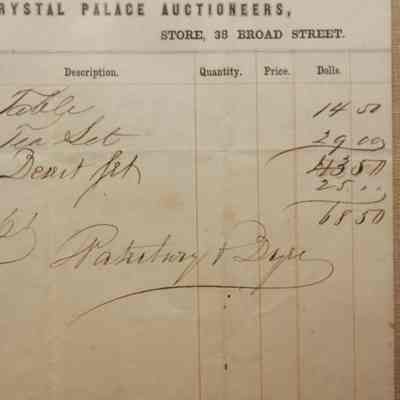 RYSTAL PALACE AUCTIONEERS,
STORE, 38 BROAD STREET.
Description. Quantity. Price. Dolls.
Table 14 50
Tea Set 29 00
43 50
Desert Set 25 00
68 50
& Dyer